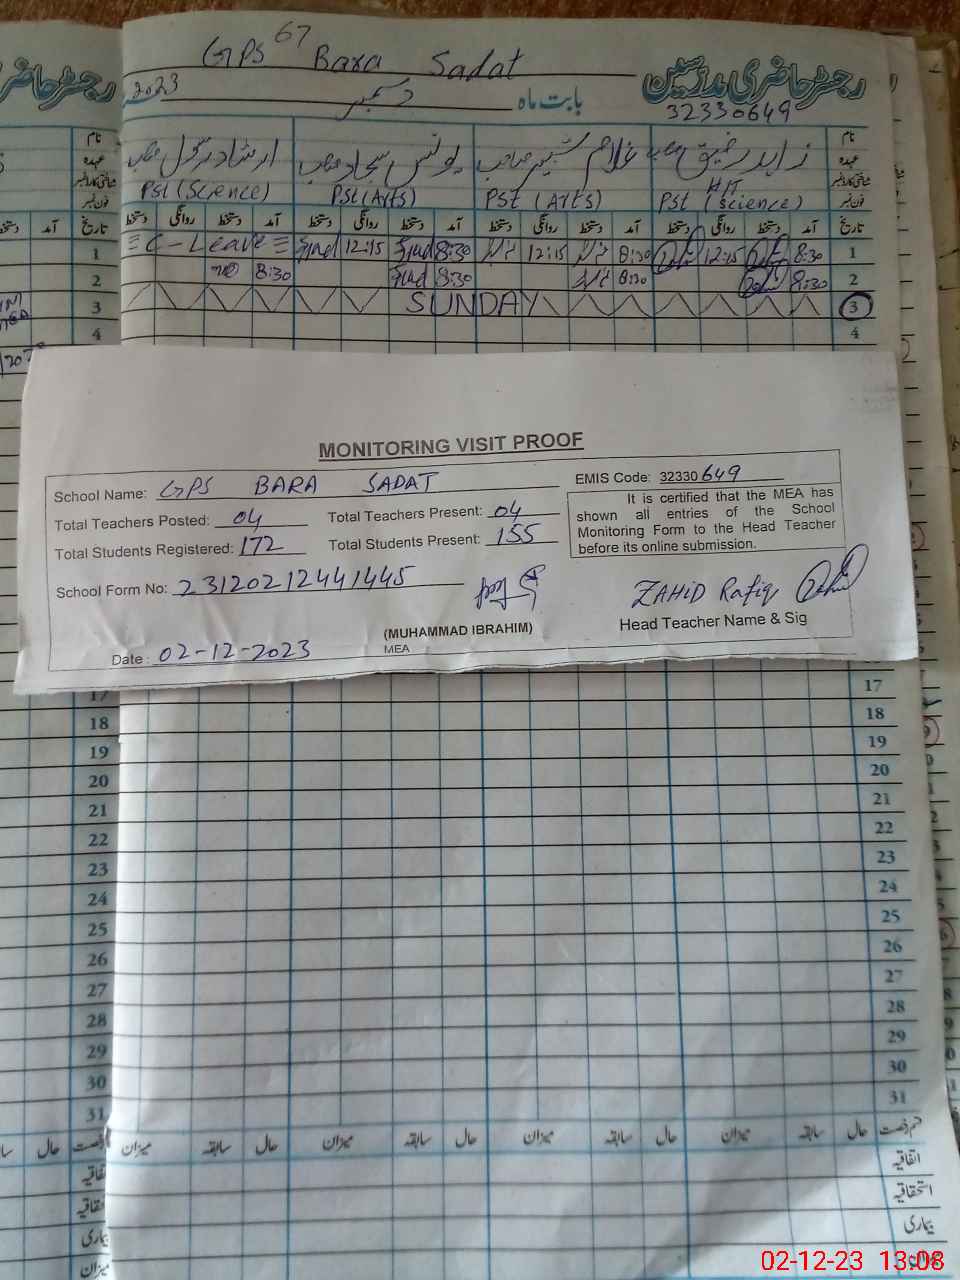 67
GPS Bara Sadat
رجسٹر حاضری مدرسین
2023 بابت ماہ دسمبر
32330649
نام
عہدہ
زاہد رفیق صاحب غلام شبیر صاحب یونس سجاد صاحب ارشاد رسول صاحب
Pst (Science) Pst (Arts) Pst (Arts) Pst H/T (Science)
تاریخ آمد دستخط روانگی دستخط آمد دستخط روانگی دستخط آمد دستخط روانگی دستخط آمد دستخط روانگی دستخط
C - Leave 12:15 8:30 12:15 8:30 12:15 8:30 1
8:30 8:30 8:30 8:30 2
SUNDAY 3
4
MONITORING VISIT PROOF
School Name: GPS BARA SADAT EMIS Code: 32330649
Total Teachers Posted: 04 Total Teachers Present: 04
Total Students Registered: 172 Total Students Present: 155
It is certified that the MEA has
shown all entries of the School
Monitoring Form to the Head Teacher
before its online submission.
School Form No: 23120212441445
ZAHID Rafiq
(MUHAMMAD IBRAHIM) Head Teacher Name & Sig
MEA
Date : 02-12-2023
17 17
18 18
19 19
20 20
21 21
22 22
23 23
24 24
25 25
26 26
27 27
28 28
29 29
30 30
31 31
قسم رخصت حال سابقہ میزان حال سابقہ میزان حال سابقہ میزان حال سابقہ میزان
اتفاقیہ
استحقاقیہ
بیماری
میزان
02-12-23 13:08